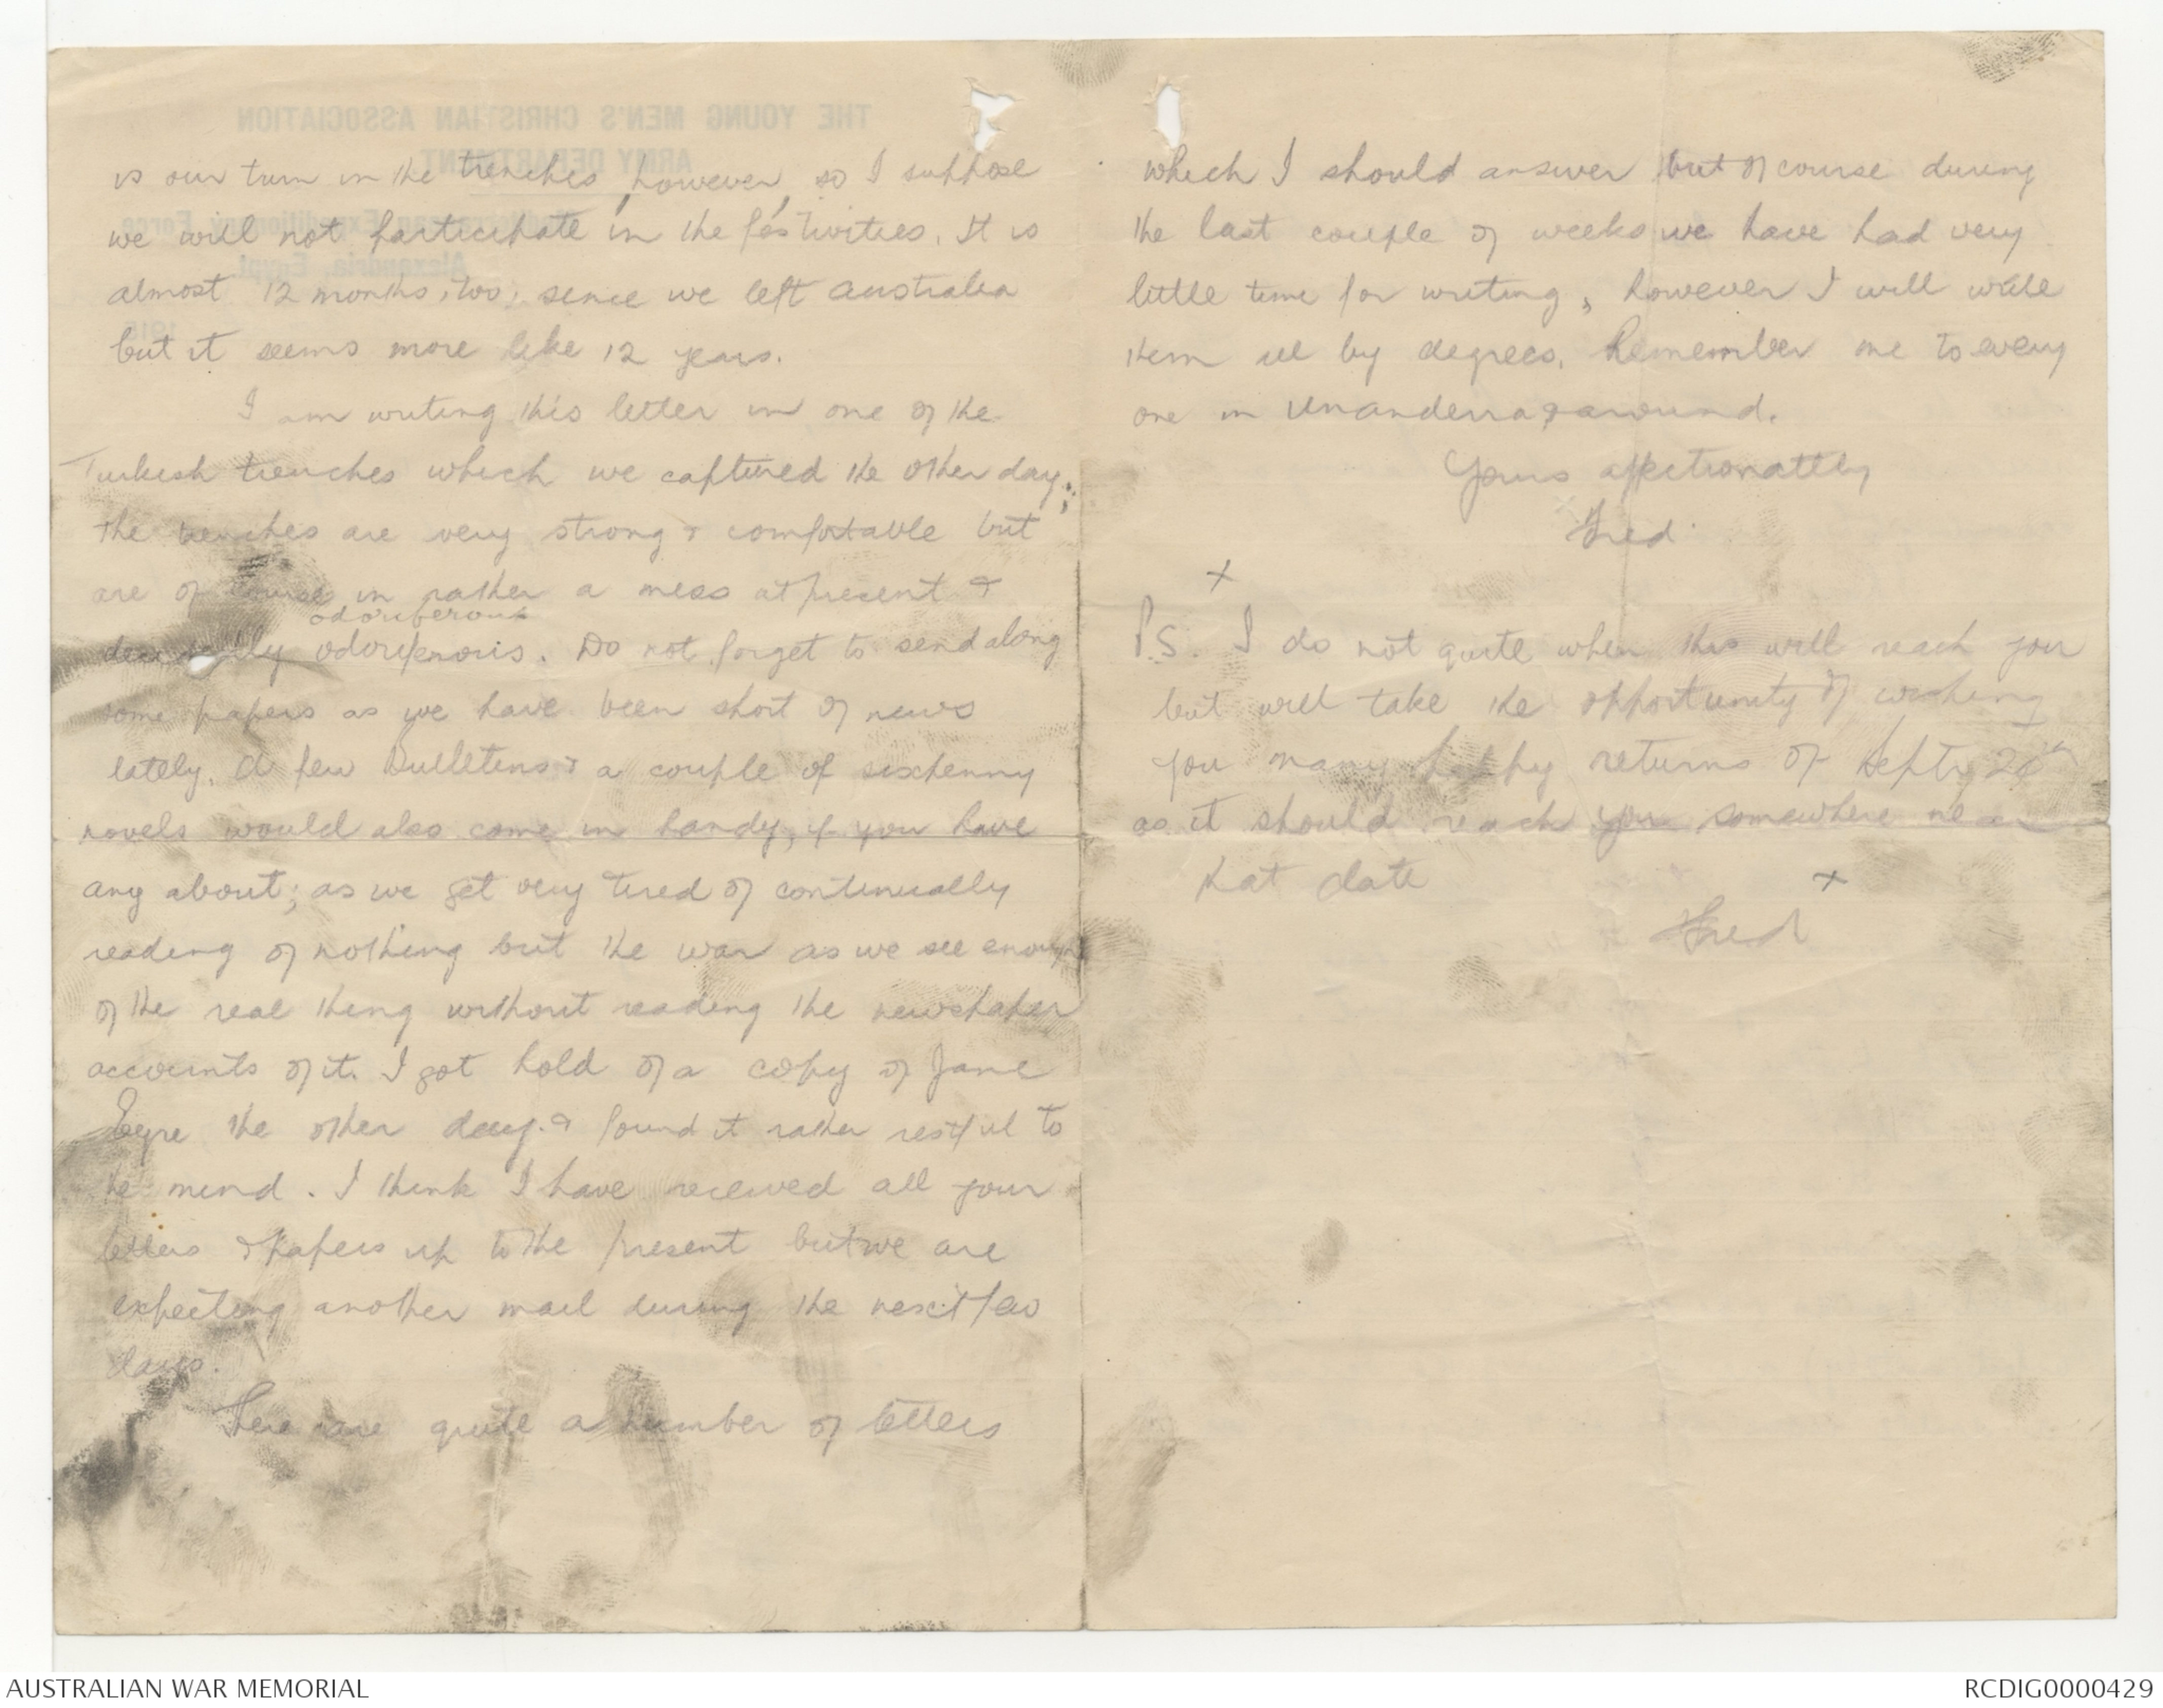 is our turn in the trenches, however, so I suppose
we will not participate in the festivities. It is
almost 12 months, too, since we left Australia
but it seems more like 12 years.
I am writing this letter in one of the
Turkish trenches which we captured the other day;
the trenches are very strong & comfortable but
are of course in rather a mess at present &
odoriberous
decidedly odoriferoris. Do not forget to send along
some papers as we have been short of news
lately. A few Bulletins & a couple of sixpenny
novels would also come in handy, if you have
any about; as we get very tired of continually
reading of nothing but the war as we see enough
of the real thing without reading the newspaper
accounts of it. I got hold of a copy of Jane
Eyre the other day & found it rather restful to
the mind. I think I have received all your
letters & papers up to the present but we are
expecting another mail during the next few
days.
There are quite a number of letters
which I should answer but of course during
the last couple of weeks we have had very
little time for writing, however I will write
them all by degrees. Remember me to every
one in Unanderra & around.
Yours affectionately
Fred
x
P.S. I do not quite when this will reach you
but will take the opportunity of wishing
you many happy returns of Septr
as it should reach you somewhere near
that date
x
Fred
THE YOUNG MEN'S CHRISTIAN ASSOCIATION
ARMY DEPARTMENT
Mediterranean Expeditionary Force
Alexandria, Egypt
1915
AUSTRALIAN WAR MEMORIAL
RCDIG0000429